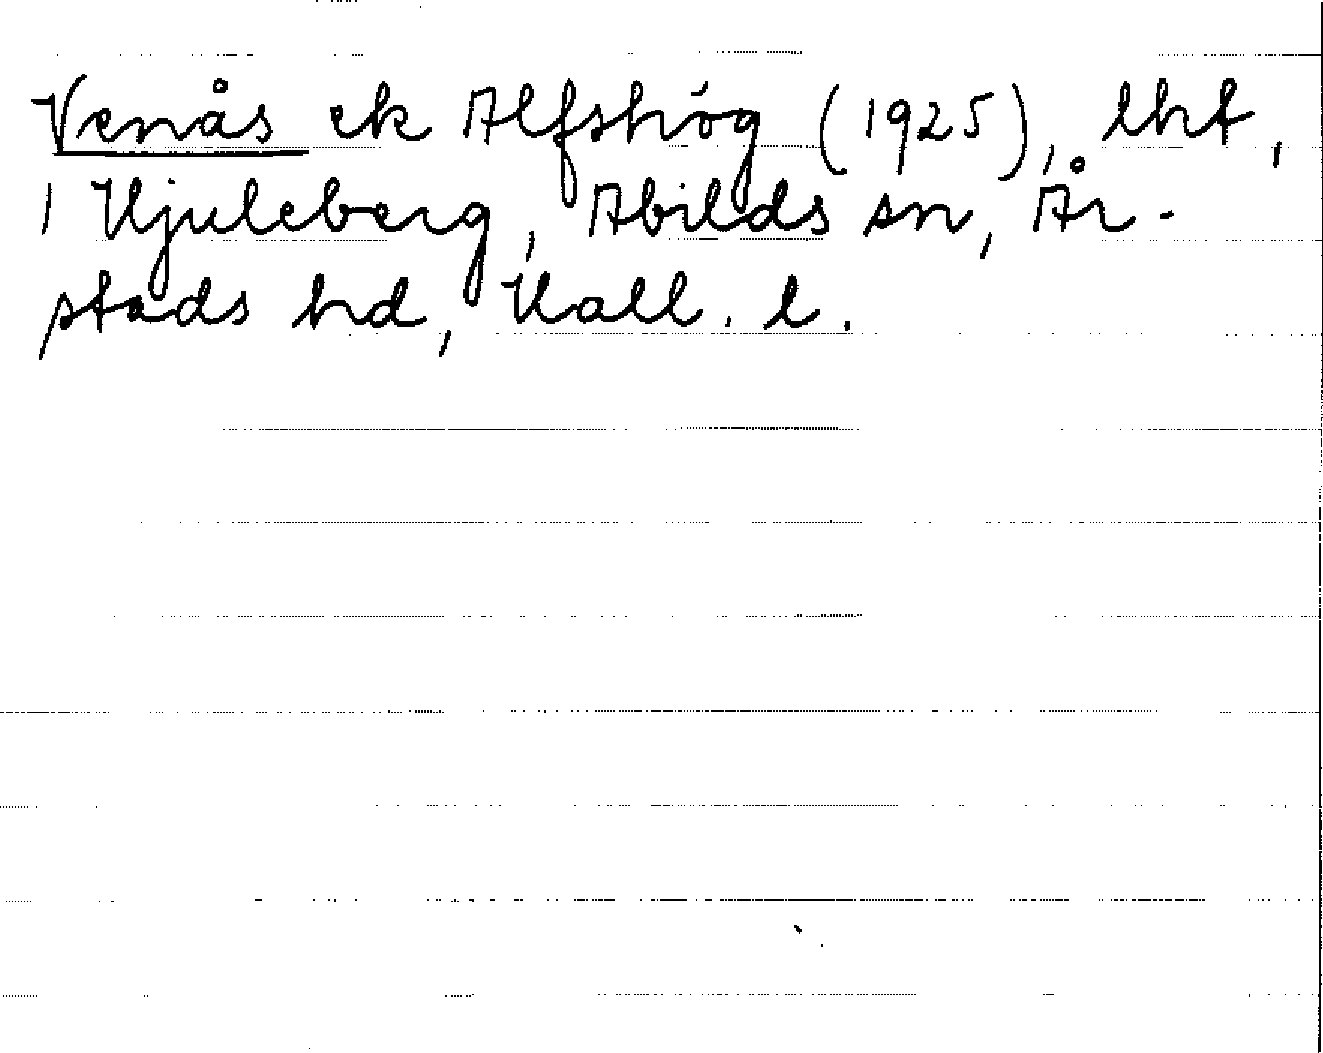 Venås ek Alfshög (1925), lht,
1 Hjuleberg, Abilds sn, År-
stads hd, Hall. l.